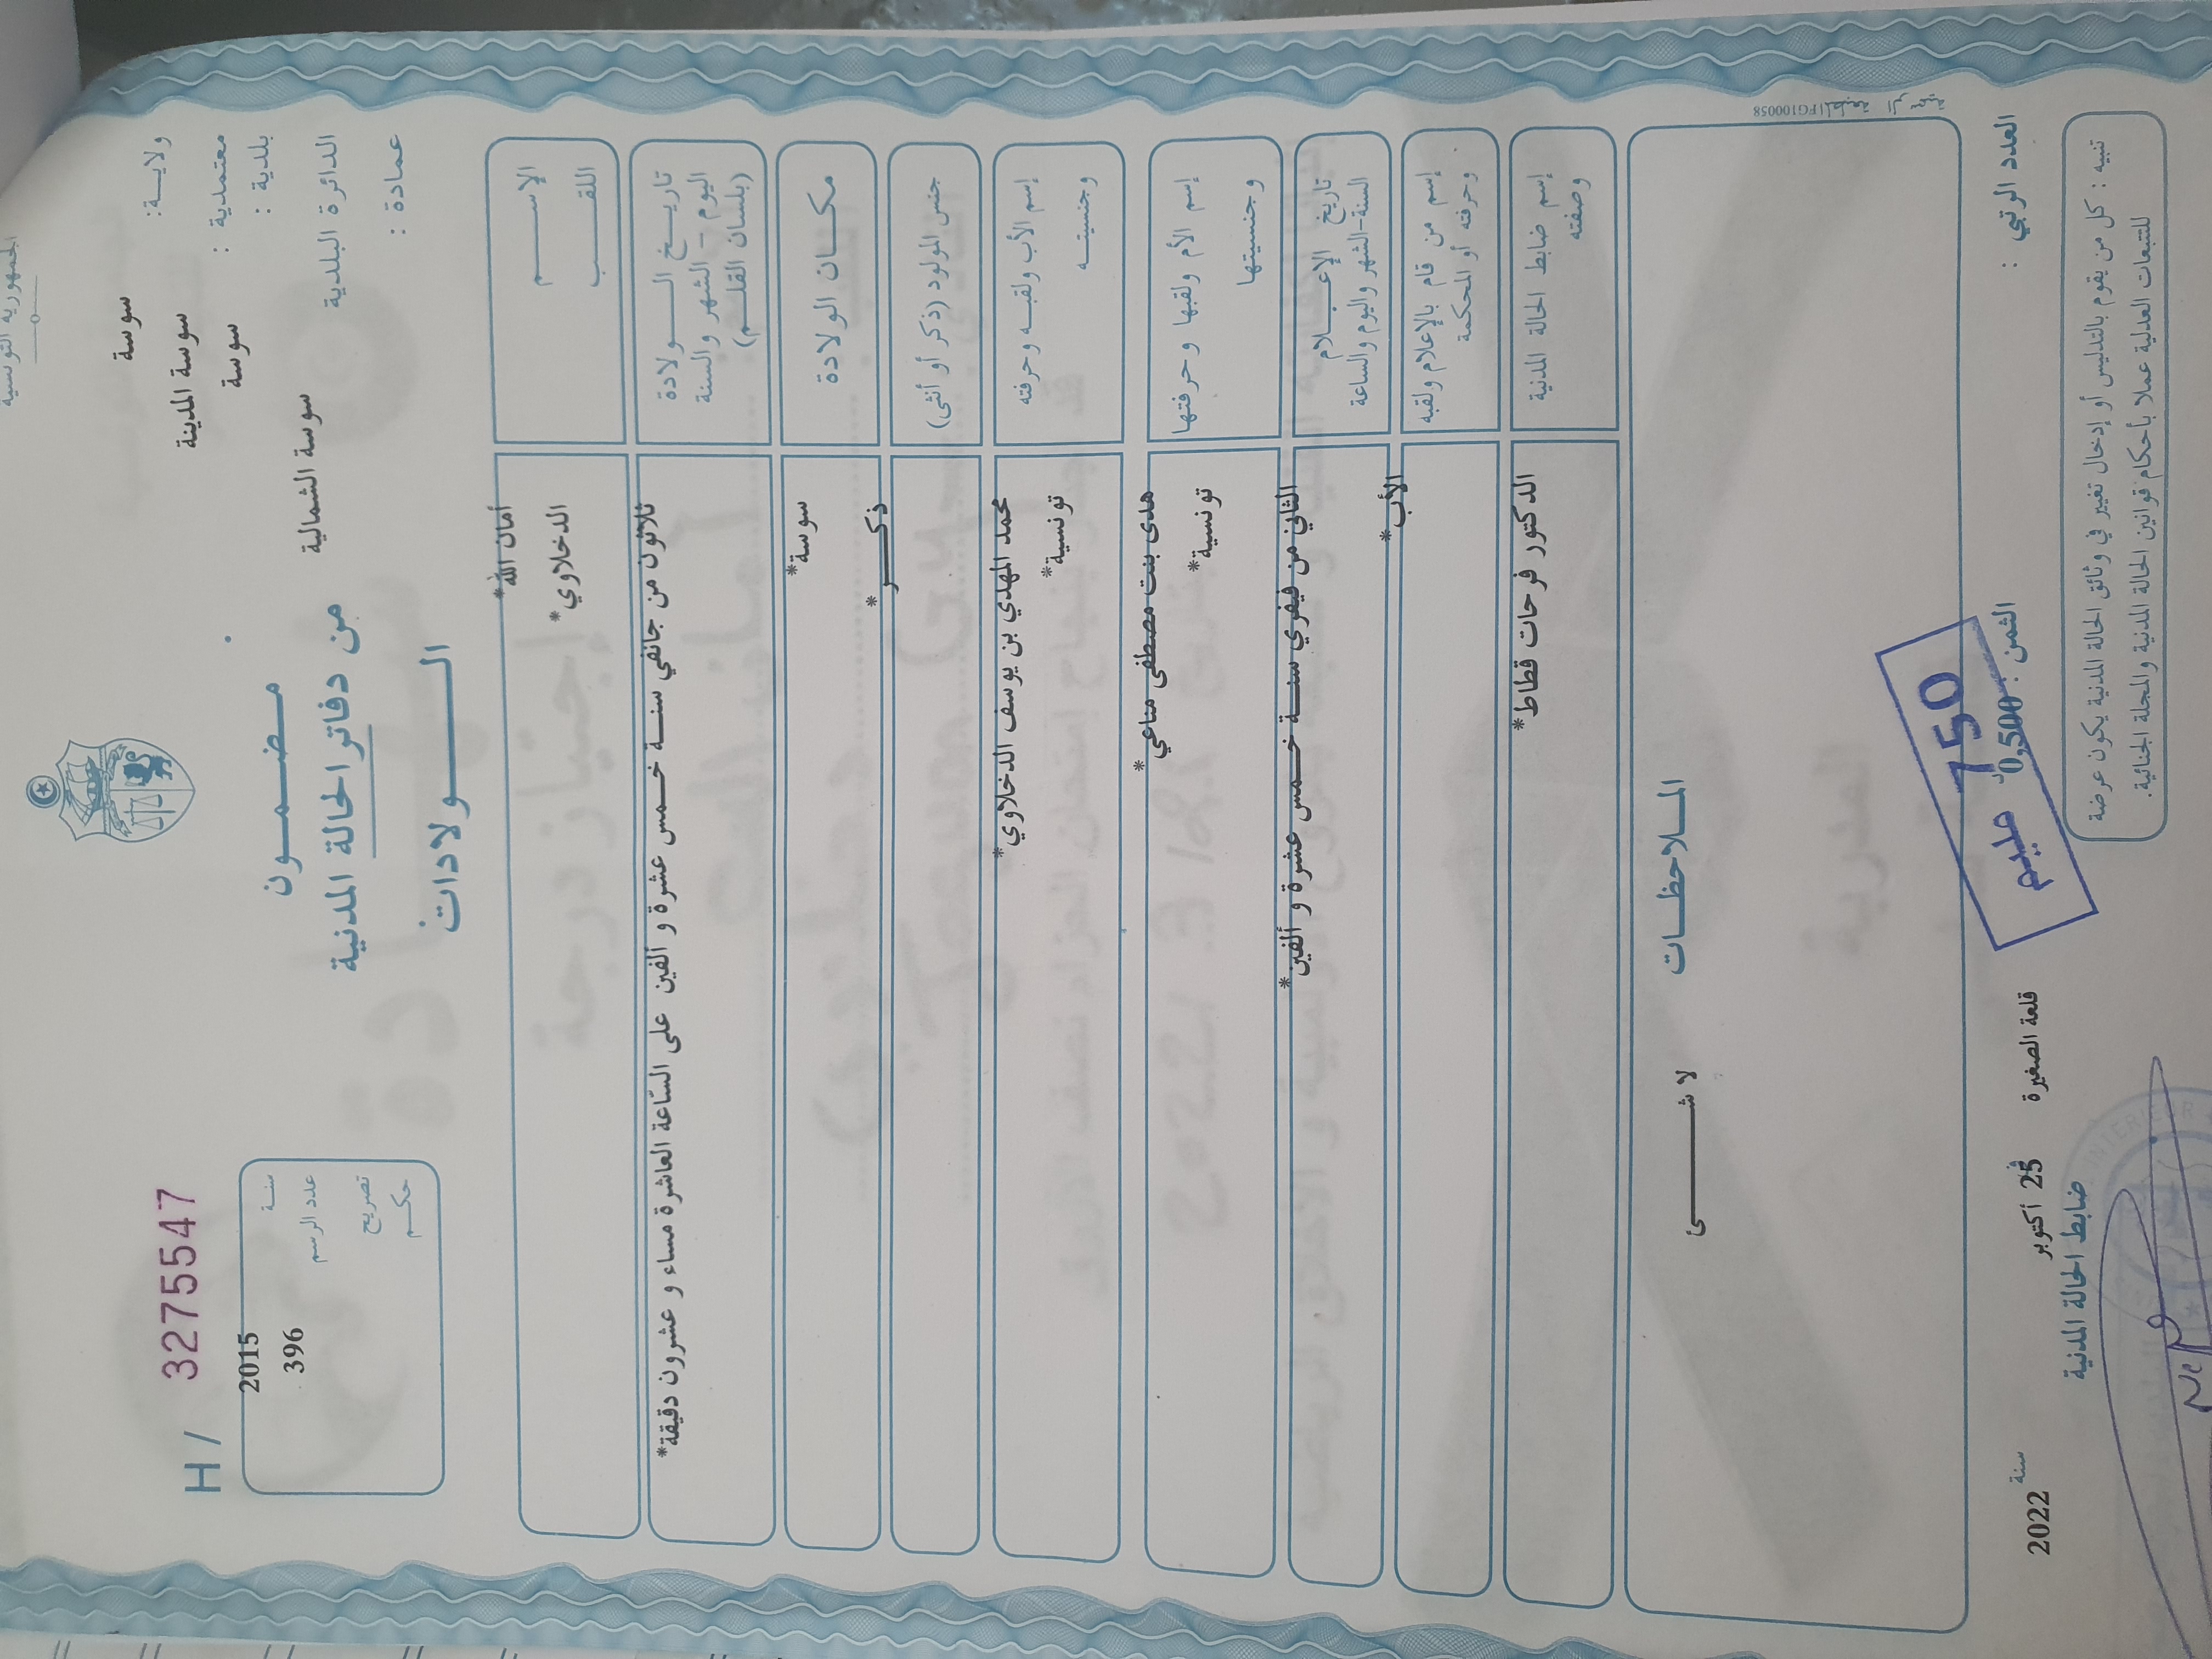 الجمهورية التونسية
ولاية: سوسة
معتمدية : سوسة المدينة
بلدية : سوسة
الدائرة البلدية سوسة الشمالية
عمادة :
H / 3275547
سنة 2015
عدد الرسم 396
تصريح
حكم
مضمون
من دفاتر الحالة المدنية
الولادات
الإسم أمان الله*
اللقب الدخلاوي*
تاريخ الولادة
اليوم - الشهر والسنة
(بلسان القلم)
ثلاثون من جانفي سنة خمس عشرة و ألفين على الساعة العاشرة مساء و عشرون دقيقة*
مكان الولادة سوسة*
جنس المولود (ذكر أو أنثى) ذكر*
إسم الأب ولقبه وحرفته محمد المهدي بن يوسف الدخلاوي*
وجنسيته تونسية*
إسم الأم ولقبها وحرفتها هدى بنت مصطفى مناعي*
وجنسيتها تونسية*
تاريخ الإعلام
السنة-الشهر واليوم والساعة
الثاني من فيفري سنة خمس عشرة و ألفين*
إسم من قام بالإعلام ولقبه
وحرفته أو المحكمة
الأب*
إسم ضابط الحالة المدنية
وصفته
الدكتور فرحات قطاط*
الملاحظات
لا شئ
FG100058
العدد الرتبي :
الثمن : 0,500
750
مليم
قلعة الصغيرة 25 أكتوبر سنة 2022
ضابط الحالة المدنية
تنبيه : كل من يقوم بالتدليس أو إدخال تغيير في وثائق الحالة المدنية يكون عرضة
للتتبعات العدلية عملا بأحكام قوانين الحالة المدنية والمجلة الجنائية.